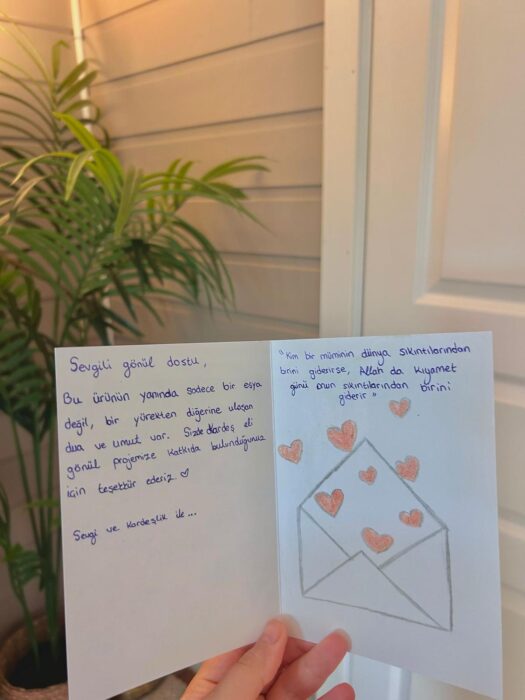 Sevgili gönül dostu,
Bu ürünün yanında sadece bir eşya
değil, bir yürekten diğerine ulaşan
dua ve umut var. Sizde Kardeş eli
gönül projemize katkıda bulunduğunuz
için teşettür ederiz ♡
Sevgi ve Kardeşlik ile...
"Kim bir müminin dünya sıkıntılarından
birini giderirse, Allah da Kıyamet
günü onun sıkıntılarından birini
giderir"